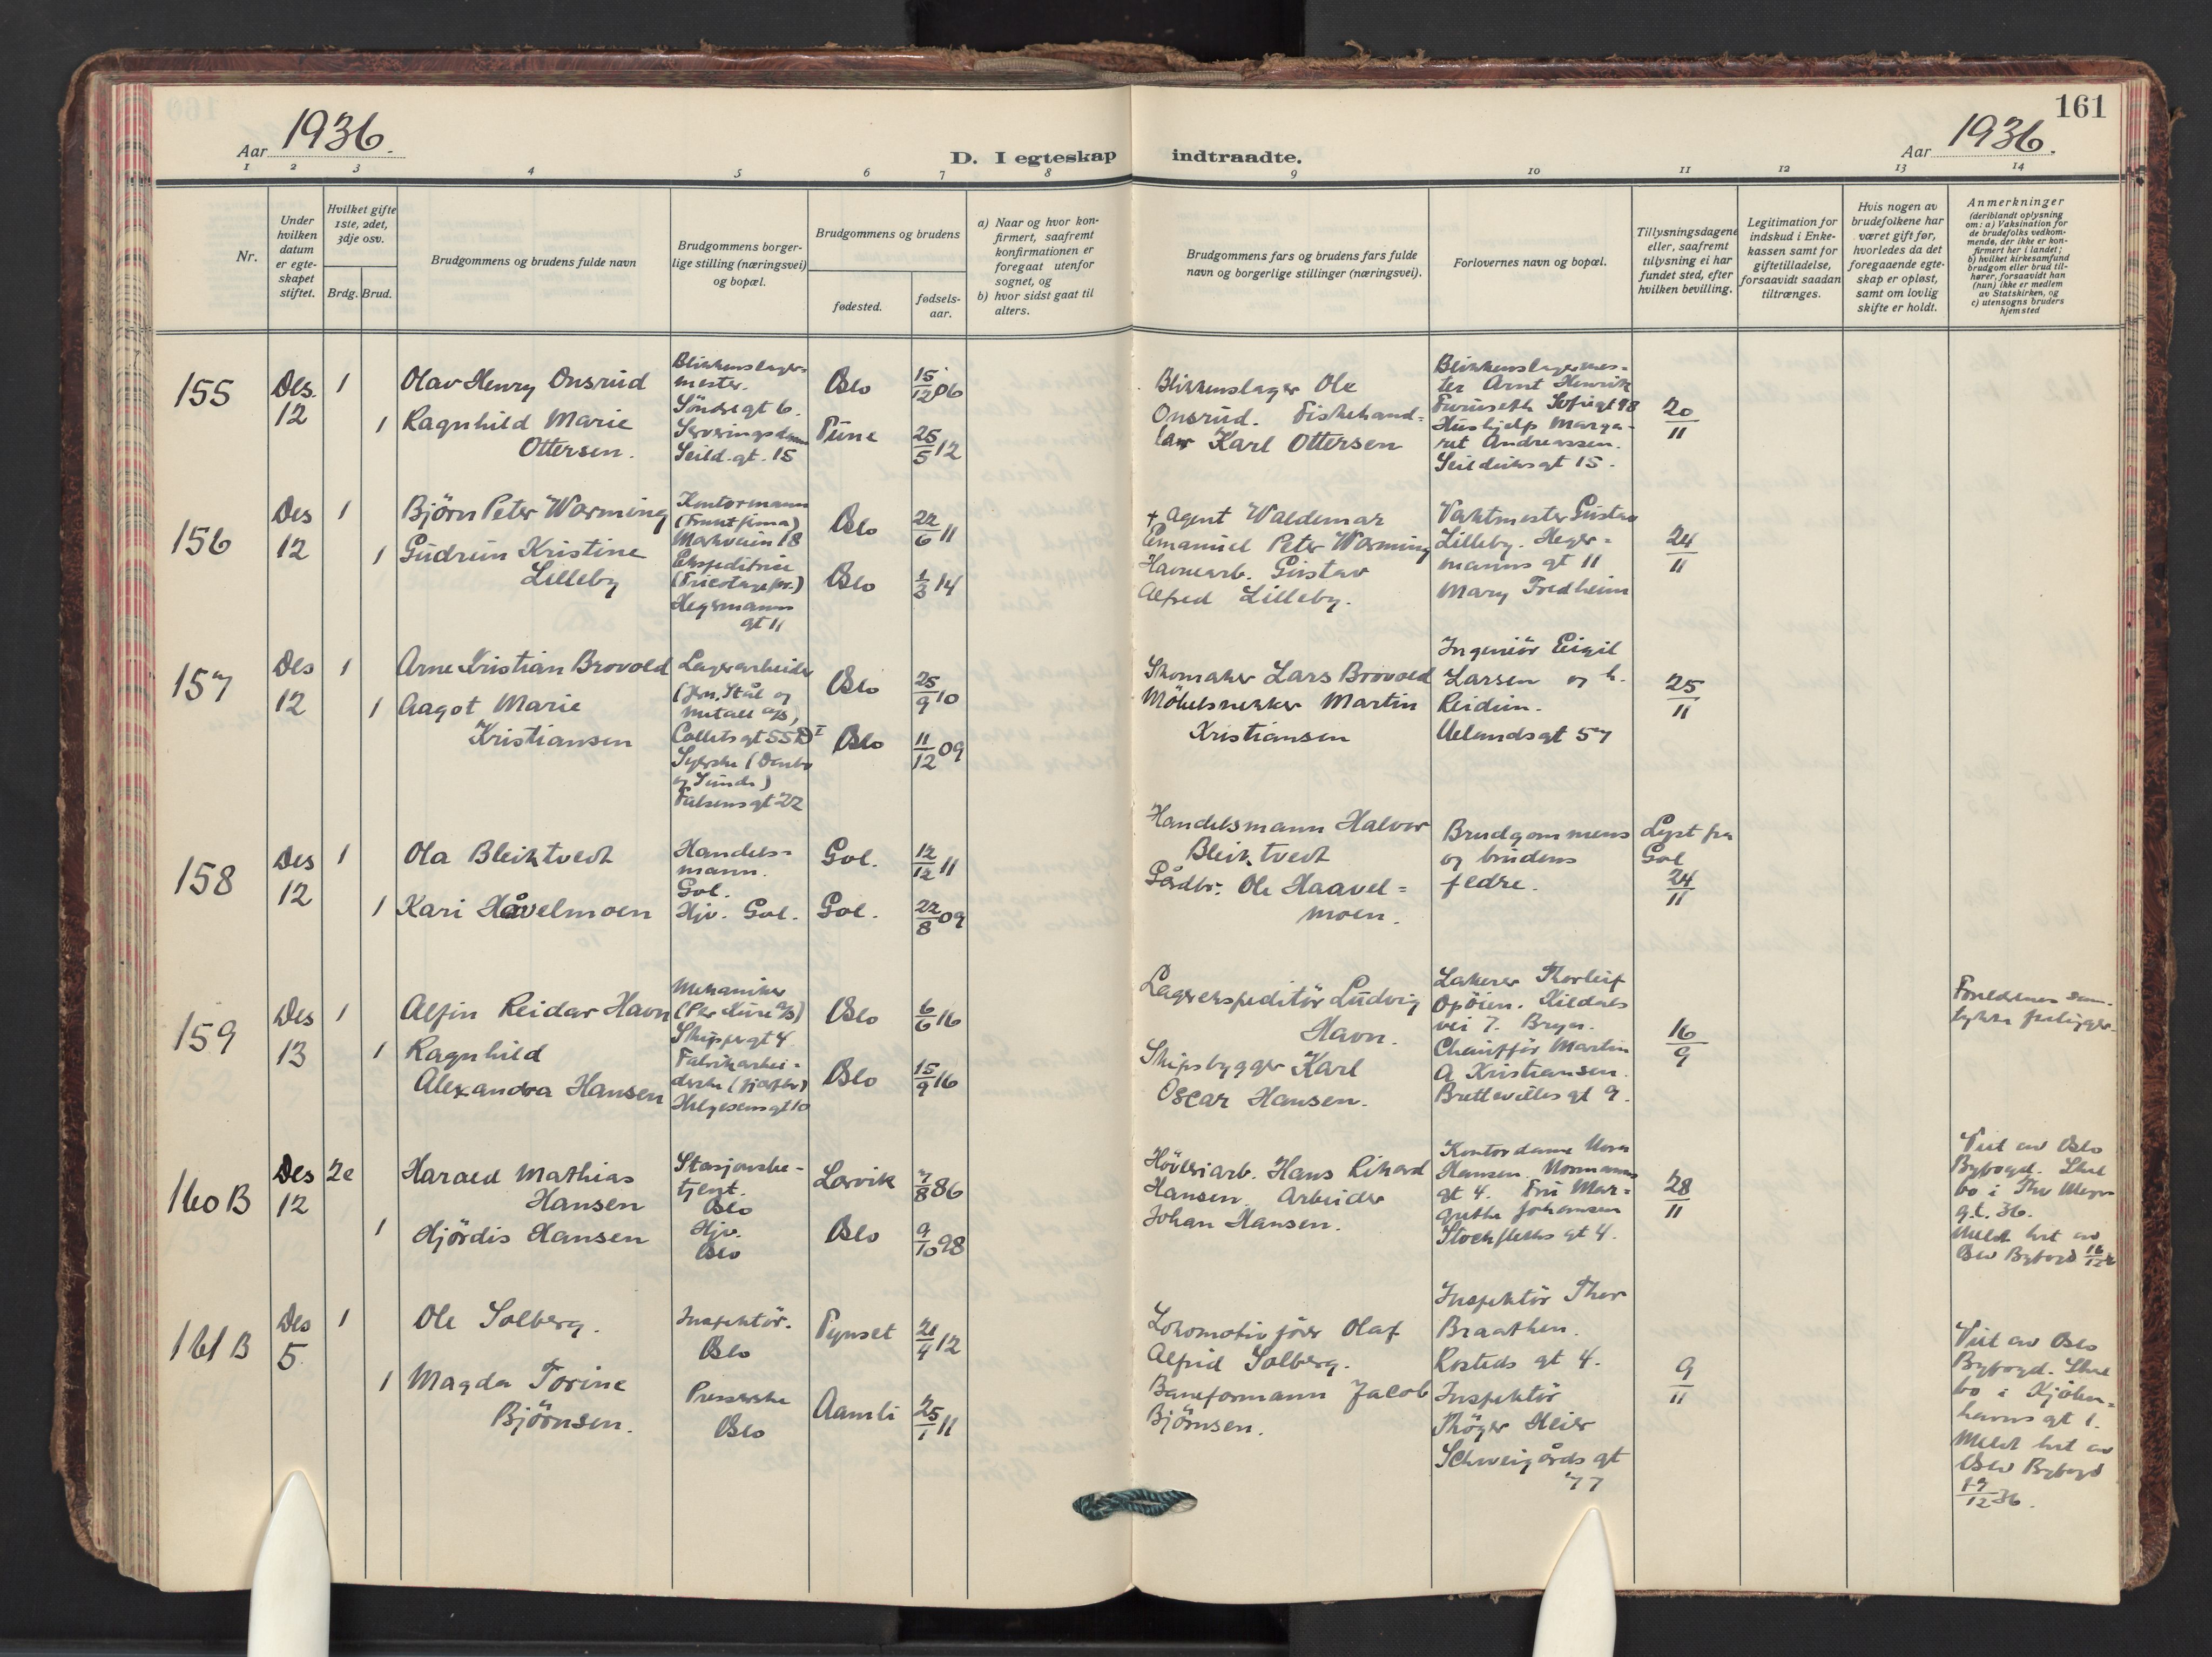 161
Aar 1936.
D. I egteskap indtraadte.
Aar 1936.
1 2 3 4 5 6 7 8 9 10 11 12 13 14
Nr.
Under hvilken datum er egte-skapet stiftet.
Hvilket gifte 1ste, 2det, 3dje osv.
Brdg. Brud.
Brudgommens og brudens fulde navn
Brudgommens borger-lige stilling (næringsvei) og bopæl.
Brudgommens og brudens
fødested.
fødsels-aar.
a) Naar og hvor kon-firmert, saafremt konfirmationen er foregaat utenfor sognet, og
b) hvor sidst gaat til alters.
Brudgommens fars og brudens fars fulde navn og borgerlige stillinger (næringsvei).
Forlovernes navn og bopæl.
Tillysningsdagene eller, saafremt tillysning ei har fundet sted, efter hvilken bevilling.
Legitimation for indskud i Enke-kassen samt for giftetilladelse, forsaavidt saadan tiltrænges.
Hvis nogen av brudefolkene har været gift før, hvorledes da det foregaaende egte-skap er opløst, samt om lovlig skifte er holdt.
Anmerkninger
(deriblandt oplysning om: a) Vaksination for de brudefolks vedkom-mende, der ikke er kon-firmert her i landet; b) hvilket kirkesamfund brudgom eller brud til-hører, forsaavidt han (hun) ikke er medlem av Statskirken, og c) utensogns bruders hjemsted
155
Des. 12
1
1
Olav Henry Onsrud
Ragnhild Marie
Ottersen.
Blikkenslager-
mester.
Söndregt 6.
Seild.gt. 15
Oslo
Tune
15/12 06
25/5 12
Blikkenslager Ole
Onsrud. Fiskehand=
ler Karl Ottersen
Blikkenslagermes-
ter Arnt Henrik
Furuseth Sofiegt 98
Hushjelp Marga-
ret Andreassen.
Seilduksgt 15.
20/11
156
Des 12
1
1
Björn Peter Worming
Gudrun Kristine
Lilleby
Kontormann
(Frukt firma)
Markveien 18
Ekspeditrise
(Tricotagefor.)
Hegermanns
gt 11
Oslo
Oslo
22/6 11
1/3 14
+ Agent Waldemar
Emanuel Peter Worming
Havnearb. Gustav
Alfred Lilleby.
Vaktmester Gustav
Lilleby. Heger=
manns gt 11
Mary Fredheim
24/11
157
Des 12
1
1
Arne Kristian Brovold
Aagot Marie
Kristiansen
Lagerarbeider
(Jern, Stål og
metall a/s)
Colletsgt 55 D I
Syerske (
og Sunde)
Falsensgt 22
Oslo
Oslo
25/9 10
11/12 09
Skomaker Lars Brovold
Möbelsnekker Martin
Kristiansen
Ingeniör Eigil
Larsen og h.
Reidun.
Uelandsgt 57
25/11
158
Des 12
1
1
Ola Bleiktvedt
Kari Håvelmoen
Handels=
mann.
Gol.
Hjv. Gol.
Gol.
Gol.
12/12 11
22/8 09
Handelsmann Halvor
Bleiktvedt
Gårdbr. Ole Haavel=
moen.
Brudgommens
og brudens
fedre.
Lyst fra
Gol
24/11
159
Des 13
1
1
Alfin Reidar Havn
Ragnhild
Alexandra Hansen
Mekaniker
(Per Kure a/s)
Skippergt 4
Fabrikarbei-
derske (
Helgesensgt 10
Oslo
Oslo
6/6 16
15/9 16
Lagerekspeditör Ludvig
Havn.
Skipsbygger Karl
Oscar Hansen.
Lakerer Thorleif
Opöien. Kildals
vei 7. Bryn.
Chaufför Martin
A Kristiansen.
Brettevilles gt 9.
16/9
Foreldrenes sam-
tykke foreligger.
160 B
Des 12
2e
1
Harald Mathias
Hansen
Hjördis Hansen
Stasjonsbe-
tjent.
Oslo
Hjv.
Oslo
Larvik
Oslo
7/8 86
9/10 98
Höveriarb. Hans Rikard
Hansen. Arbeider
Johan Hansen.
Kontordame
Hansen. Normanns
gt 4. Fru Mar=
grethe Johansen
Stockfleths gt 4.
28/11
Viet av Oslo
Byfogd. Skal
bo i Thv Meyers
gt. 36.
Meldt hit av
Oslo Byfogd 16/12
161 B
Des 5
1
1
Ole Solberg.
Magda Torine
Björnsen.
Inspektör.
Oslo
Presserske
Oslo
Tynset
Aamli
21/4 12
25/1 11
Lokomotivförer Olaf
Alfrid Solberg.
Baneformann Jacob
Björnsen.
Inspektör Thor
Braathen.
Rosteds gt 4.
Inspektör
Thöger Meier
Schweigårds gt
77
9/11
Viet av Oslo
Byfogd. Skal
bo i Kjöben=
havns gt 1.
Meldt hit av
Oslo Byfogd
17/12 36.